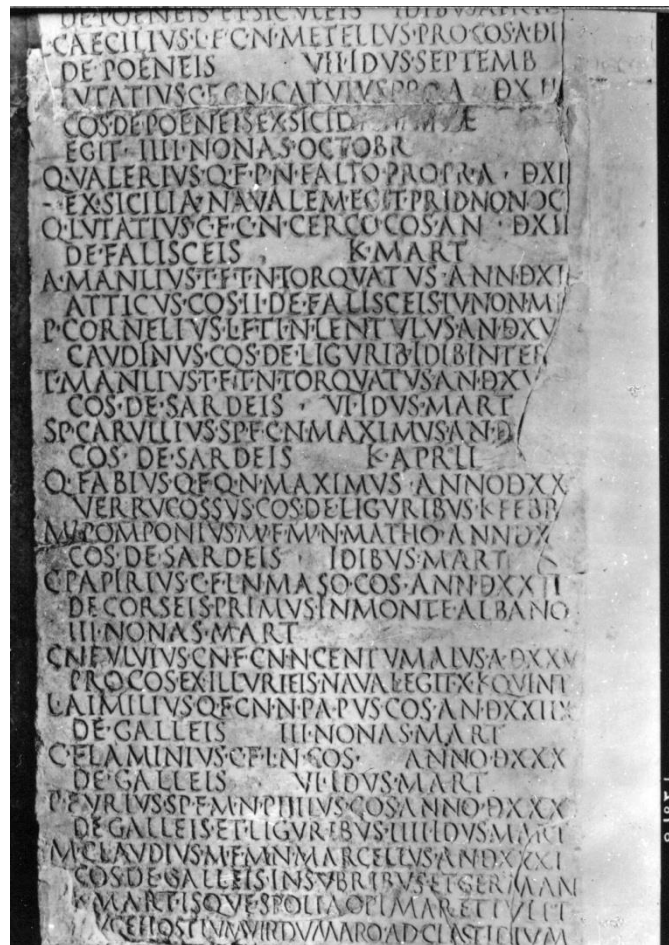 DE·POENEIS·ET·SICVLEIS IDIBVS·APRIL
·CAECILIVS·L·F·C·N·METELLVS·PRO·COS·A·ĐI
DE·POENEIS VII·IDVS·SEPTEMB
LVTATIVS·C·F·C·N·CATVLVS·PRO A ĐXII
COS·DE·POENEIS·EX·SICI
EGIT· IIII·NONAS·OCTOBR
Q·VALERIVS·Q·F·P·N·FALTO·PRO·PR·A · ĐXII
EX·SICILIA·NAVALEM·EGIT·PRID·NON·OC
Q·LVTATIVS·C·F·C·N·CERCO·COS·AN · ĐXII
DE·FALISCEIS K·MART
A·MANLIVS·T·F·T·N·TORQVATVS·ANN·ĐXII
ATTICVS·COS·II·DE·FALISCEIS·IV·NON·M
P·CORNELIVS·L·F·TI·N·LENTVLVS·AN·ĐXV
CAVDINVS·COS·DE·LIGVRIB·IDIB·INTER
T·MANLIVS·T·F·T·N·TORQVATVS·AN·ĐXV
COS·DE·SARDEIS · VI·IDVS·MART
SP·CARVILIVS·SP·F·C·N·MAXIMVS·AN·Đ
COS· DE·SARDEIS K·APRIL
Q·FABIVS·Q·F·Q·N·MAXIMVS · ANNO·ĐXX
VERRVCOSSVS·COS·DE·LIGVRIBVS·K·FEBR
M·POMPONIVS·M·F·M·N·MATHO·ANN·ĐX
COS·DE·SARDEIS IDIBVS·MART
C·PAPIRIVS·C·F·L·N·MASO·COS·ANN·ĐXXII
DE·CORSEIS·PRIMVS·IN·MONTE·ALBANO
III·NONAS·MART
CN·FVLVIVS·CN·F·CN·N·CENTVMALVS·A·ĐXXV
PRO·COS·EX·ILLVRIEIS·NAVAL·EGIT·X·K·QVINT
L·AIMILIVS·Q·F·CN·N·PAPVS·COS·AN·ĐXXIIX
DE·GALLEIS III·NONAS·MART
C·FLAMINIVS·C·F·L·N·COS· ANNO·ĐXXX
DE·GALLEIS VI·IDVS·MART
P·FVRIVS·SP·F·M·N·PHILVS·COS·ANNO·ĐXXX
DE·GALLEIS·ET·LIGVRIBVS·IIII·IDVS·MART
M·CLAVDIVS·M·F·M·N·MARCELLVS·AN·ĐXXXI
COS·DE·GALLEIS·INSVBRIBVS·ET·GERMAN
K·MART·ISQVE·SPOLIA·OPIMA·RETTVLIT
DVCE·HOSTIVM·VIRDVMARO·AD·CLASTIDIVM